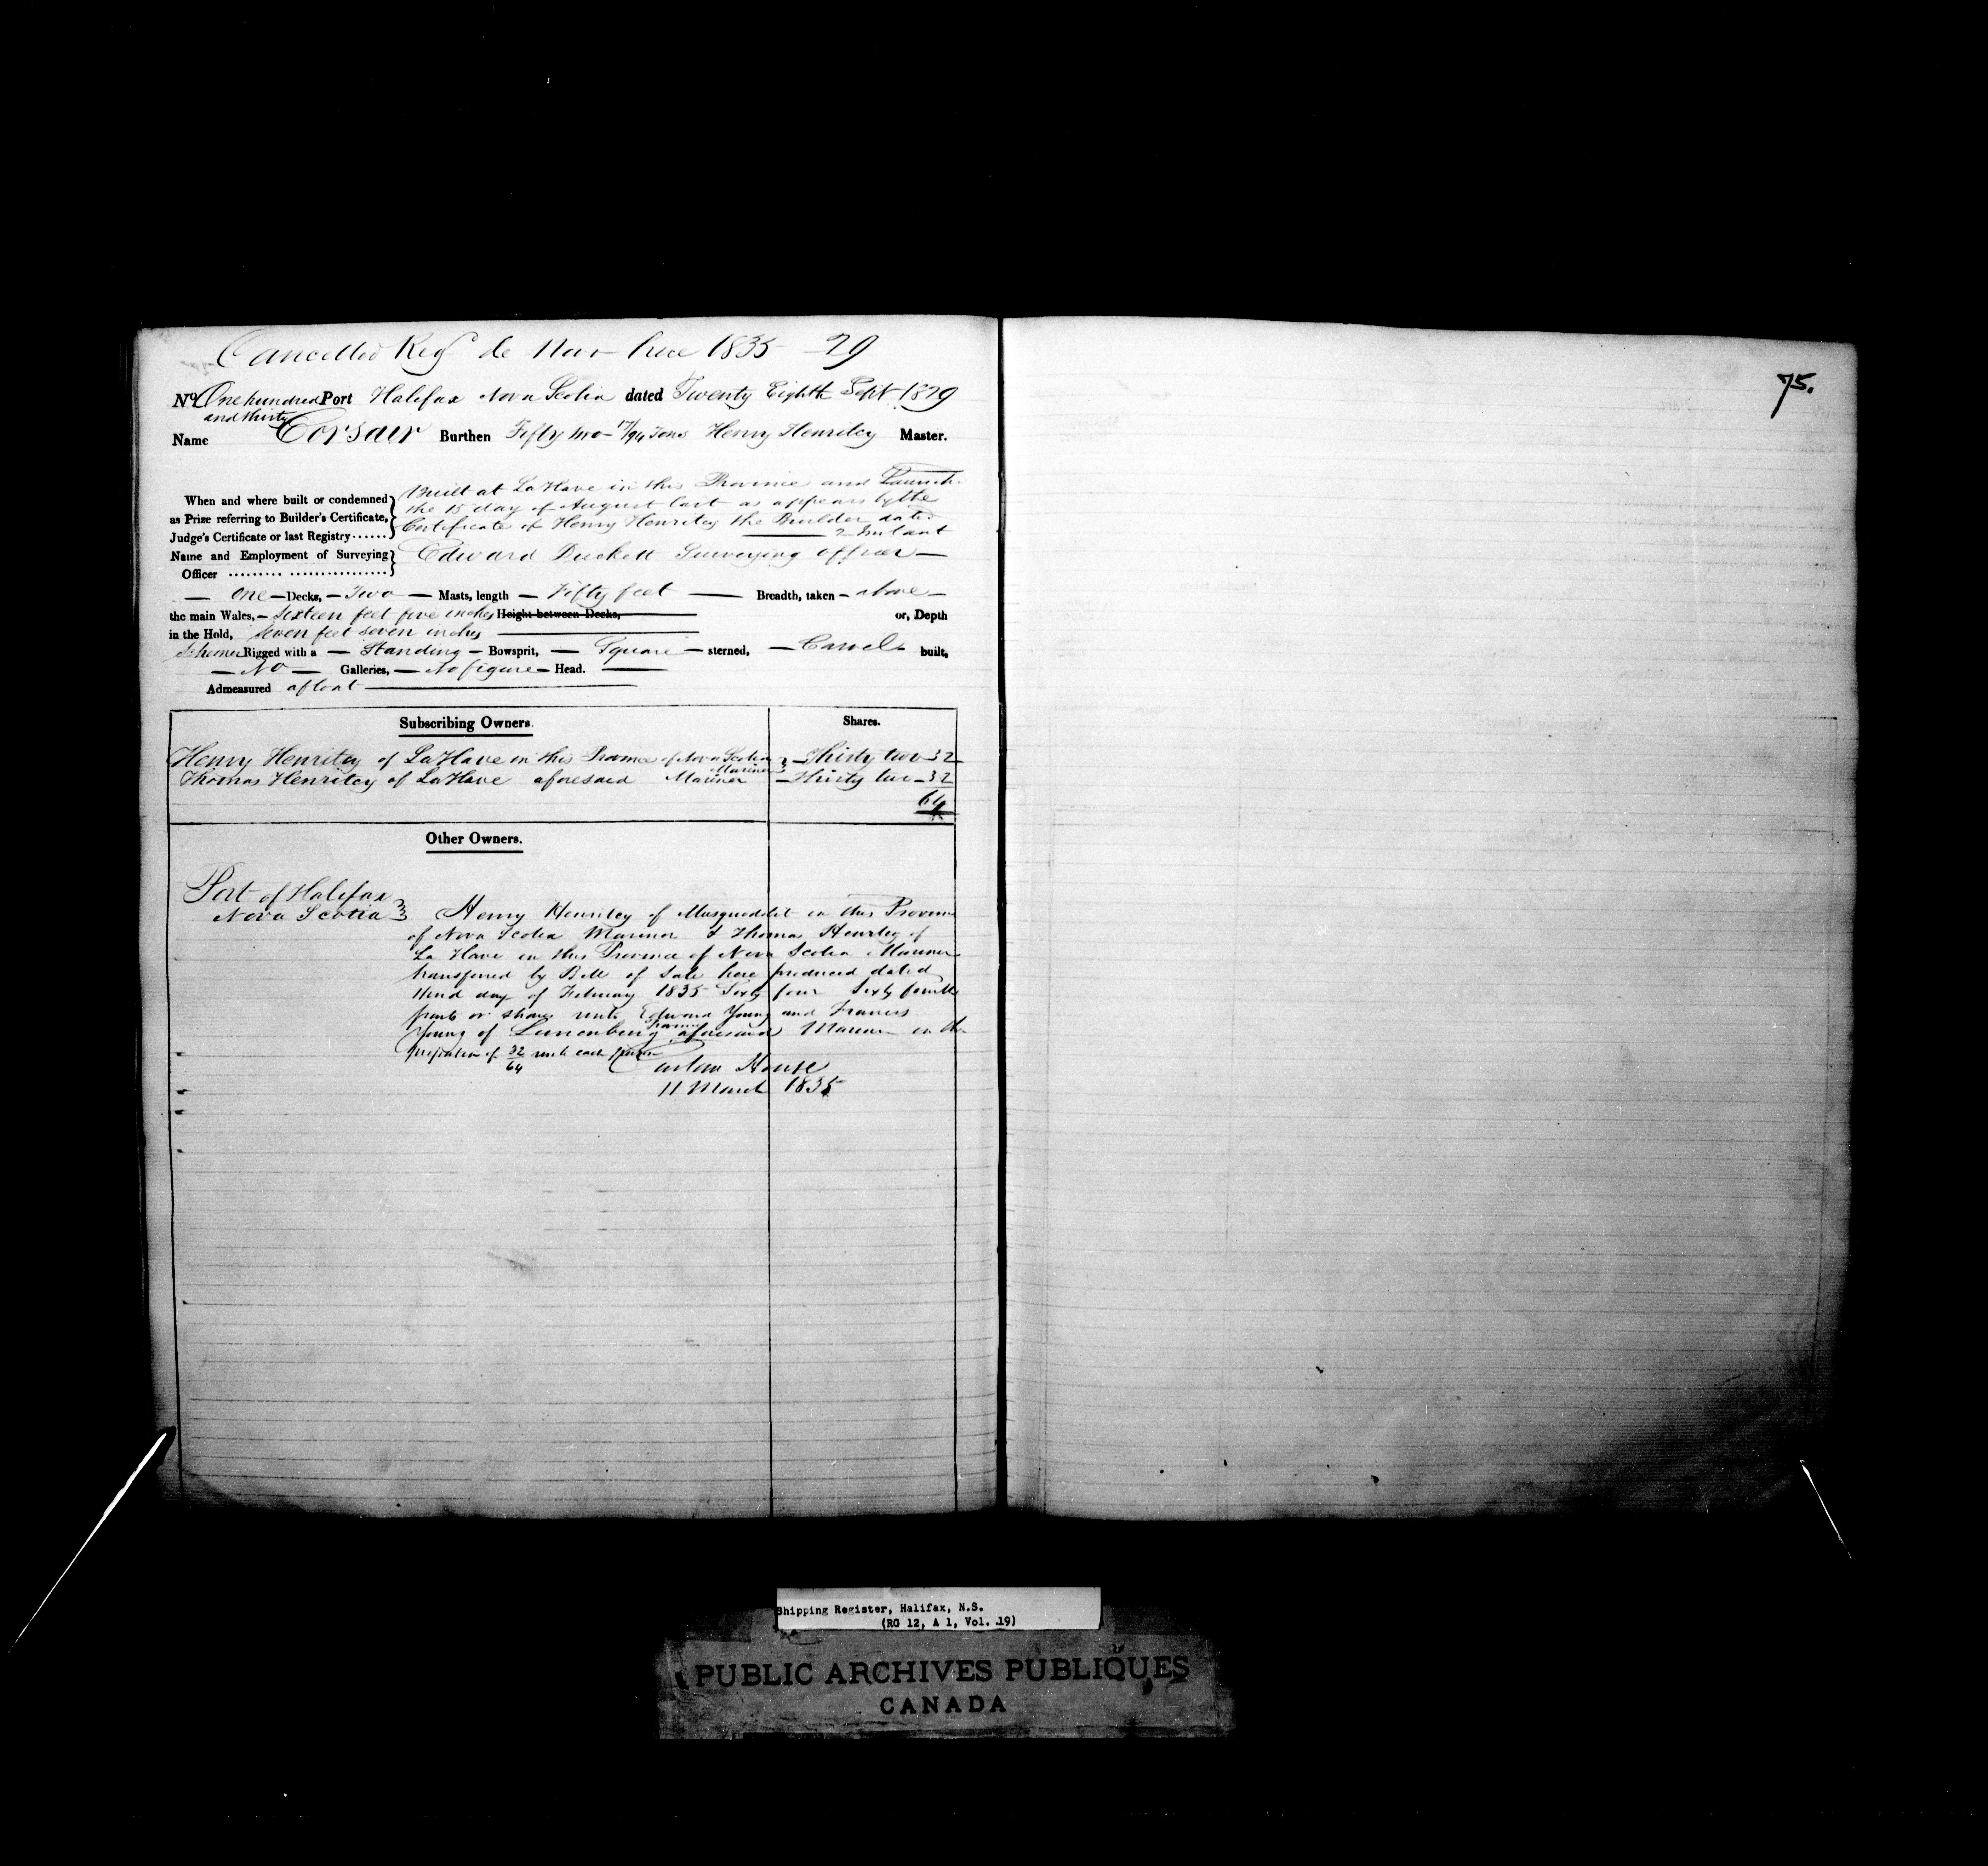 Cancelled Reg de Novo here 1835 - 29
No One hundred and thirty Port Halifax Nova Scotia dated Twenty Eighth Sept 1829
Name Corsair Burthen Fifty two 17/94 Tons Henry Henriley Master.
When and where built or condemned as Prize referring to Builder's Certificate, Judge's Certificate or last Registry......
Built at LaHave in this Province and Launch
the 15 day of August last as appears by the
Certificate of Henry Henriley the Builder dated
2 Instant
Name and Employment of Surveying Officer ......... ................
Edward Duckett Surveying officer
One Decks, Two Masts, length Fifty feet Breadth, taken above
the main Wales, Sixteen feet five inches Height between Decks, or, Depth
in the Hold, Seven feet seven inches
Schooner Rigged with a Standing Bowsprit, Square sterned, Carvel built,
No Galleries, No figure Head.
Admeasured afloat
Subscribing Owners. Shares.
Henry Henriley of LaHave in this Province of Nova Scotia Mariner Thirty two 32
Thomas Henriley of LaHave aforesaid Mariner Thirty two 32
64
Other Owners.
Port of Halifax
Nova Scotia
Henry Henriley of Musquodobit in this Province
of Nova Scotia Mariner & Thomas Henriley of
La Have in this Province of Nova Scotia Mariner
transferred by Bill of Sale here produced dated
third day of February 1835 Sixty four Sixty fourth
parts or shares unto Edward Young and Francis
Young of Lunenburg aforesaid Mariner in the
proportion of 32/64 unto each
Custom House
11 March 1835
75.
Shipping Register, Halifax, N.S.
(RG 12, A 1, Vol. 19)
PUBLIC ARCHIVES PUBLIQUES
CANADA